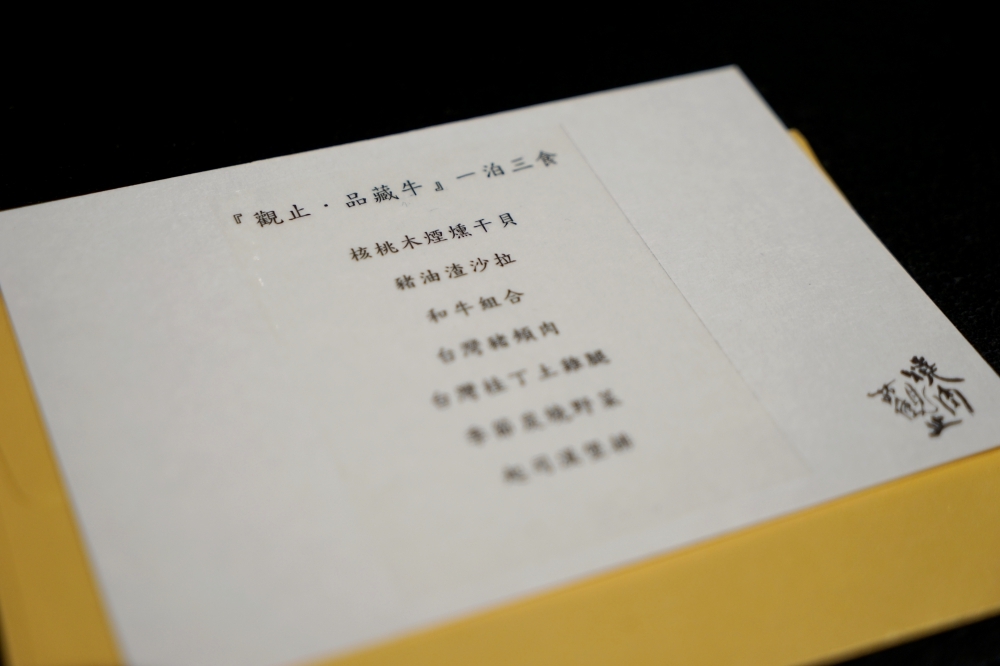 『觀止·品藏牛』一泊三食
核桃木煙燻干貝
豬油渣沙拉
和牛組合
台灣豬頰肉
台灣桂丁土雞腿
季節炭燒野菜
起司漢堡排
燒肉
觀止